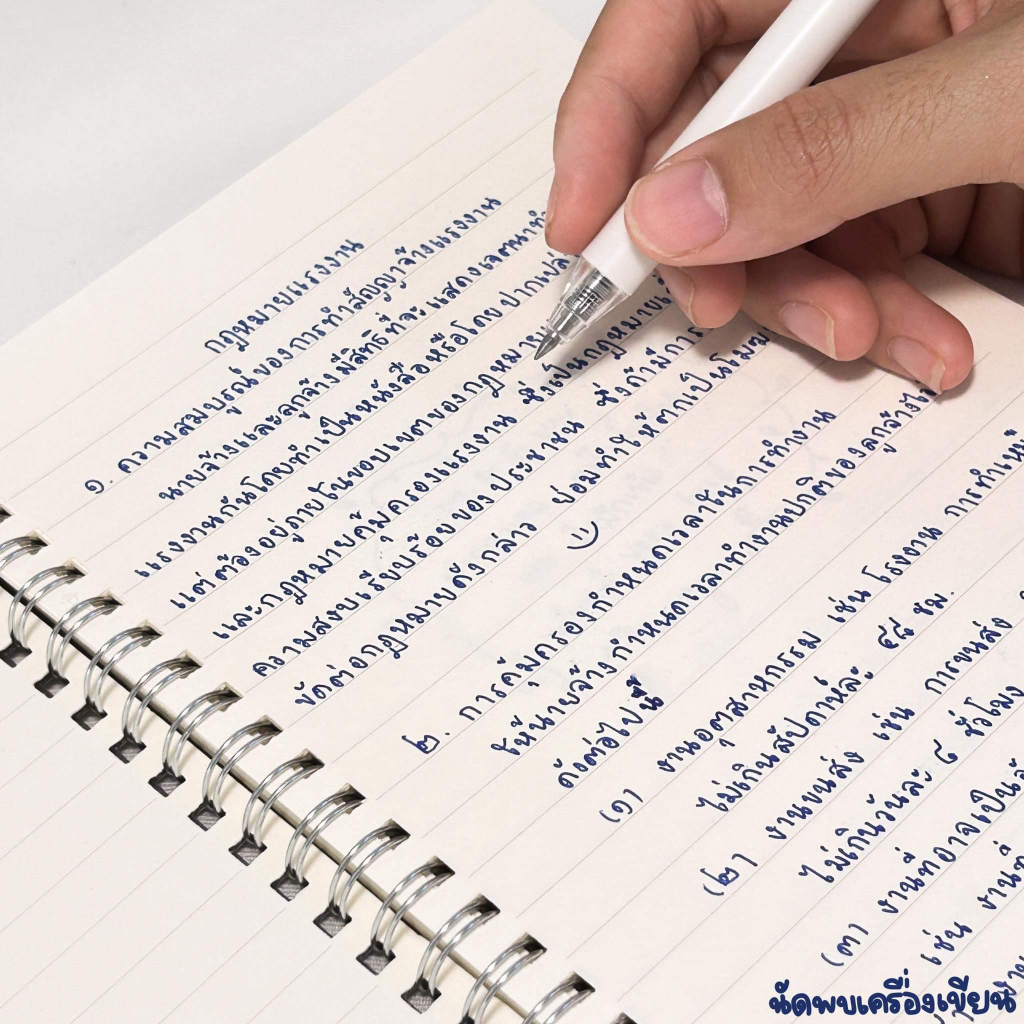 กฎหมายแรงงาน
๑. ความสมบูรณ์ของการทำสัญญาจ้างแรงงาน
นายจ้างและลูกจ้างมีสิทธิที่จะแสดงเจตนาทำ
แรงงานกันโดยทำเป็นหนังสือหรือโดยปากเปล่
แต่ต้องอยู่ภายในขอบเขตของกฎหมาย
และกฎหมายคุ้มครองแรงงาน ซึ่งเป็นกฎหมาย
ความสงบเรียบร้อยของประชาชน ซึ่งถ้ามีการ
ขัดต่อกฎหมายดังกล่าว ย่อมทำให้ตกเป็นโมฆะ
๒. การคุ้มครองกำหนดเวลาในการทำงาน
ให้นายจ้างกำหนดเวลาทำงานปกติของลูกจ้าง
ดังต่อไปนี้
(๑) งานอุตสาหกรรม เช่น โรงงาน การทำ
ไม่เกินสัปดาห์ละ ๔๘ ชม.
(๒) งานขนส่ง เช่น การขนส่ง
ไม่เกินวันละ ๘ ชั่วโมง
(๓) งานที่อาจเป็น
เช่น งานที่
นัดพบเครื่องเขียน